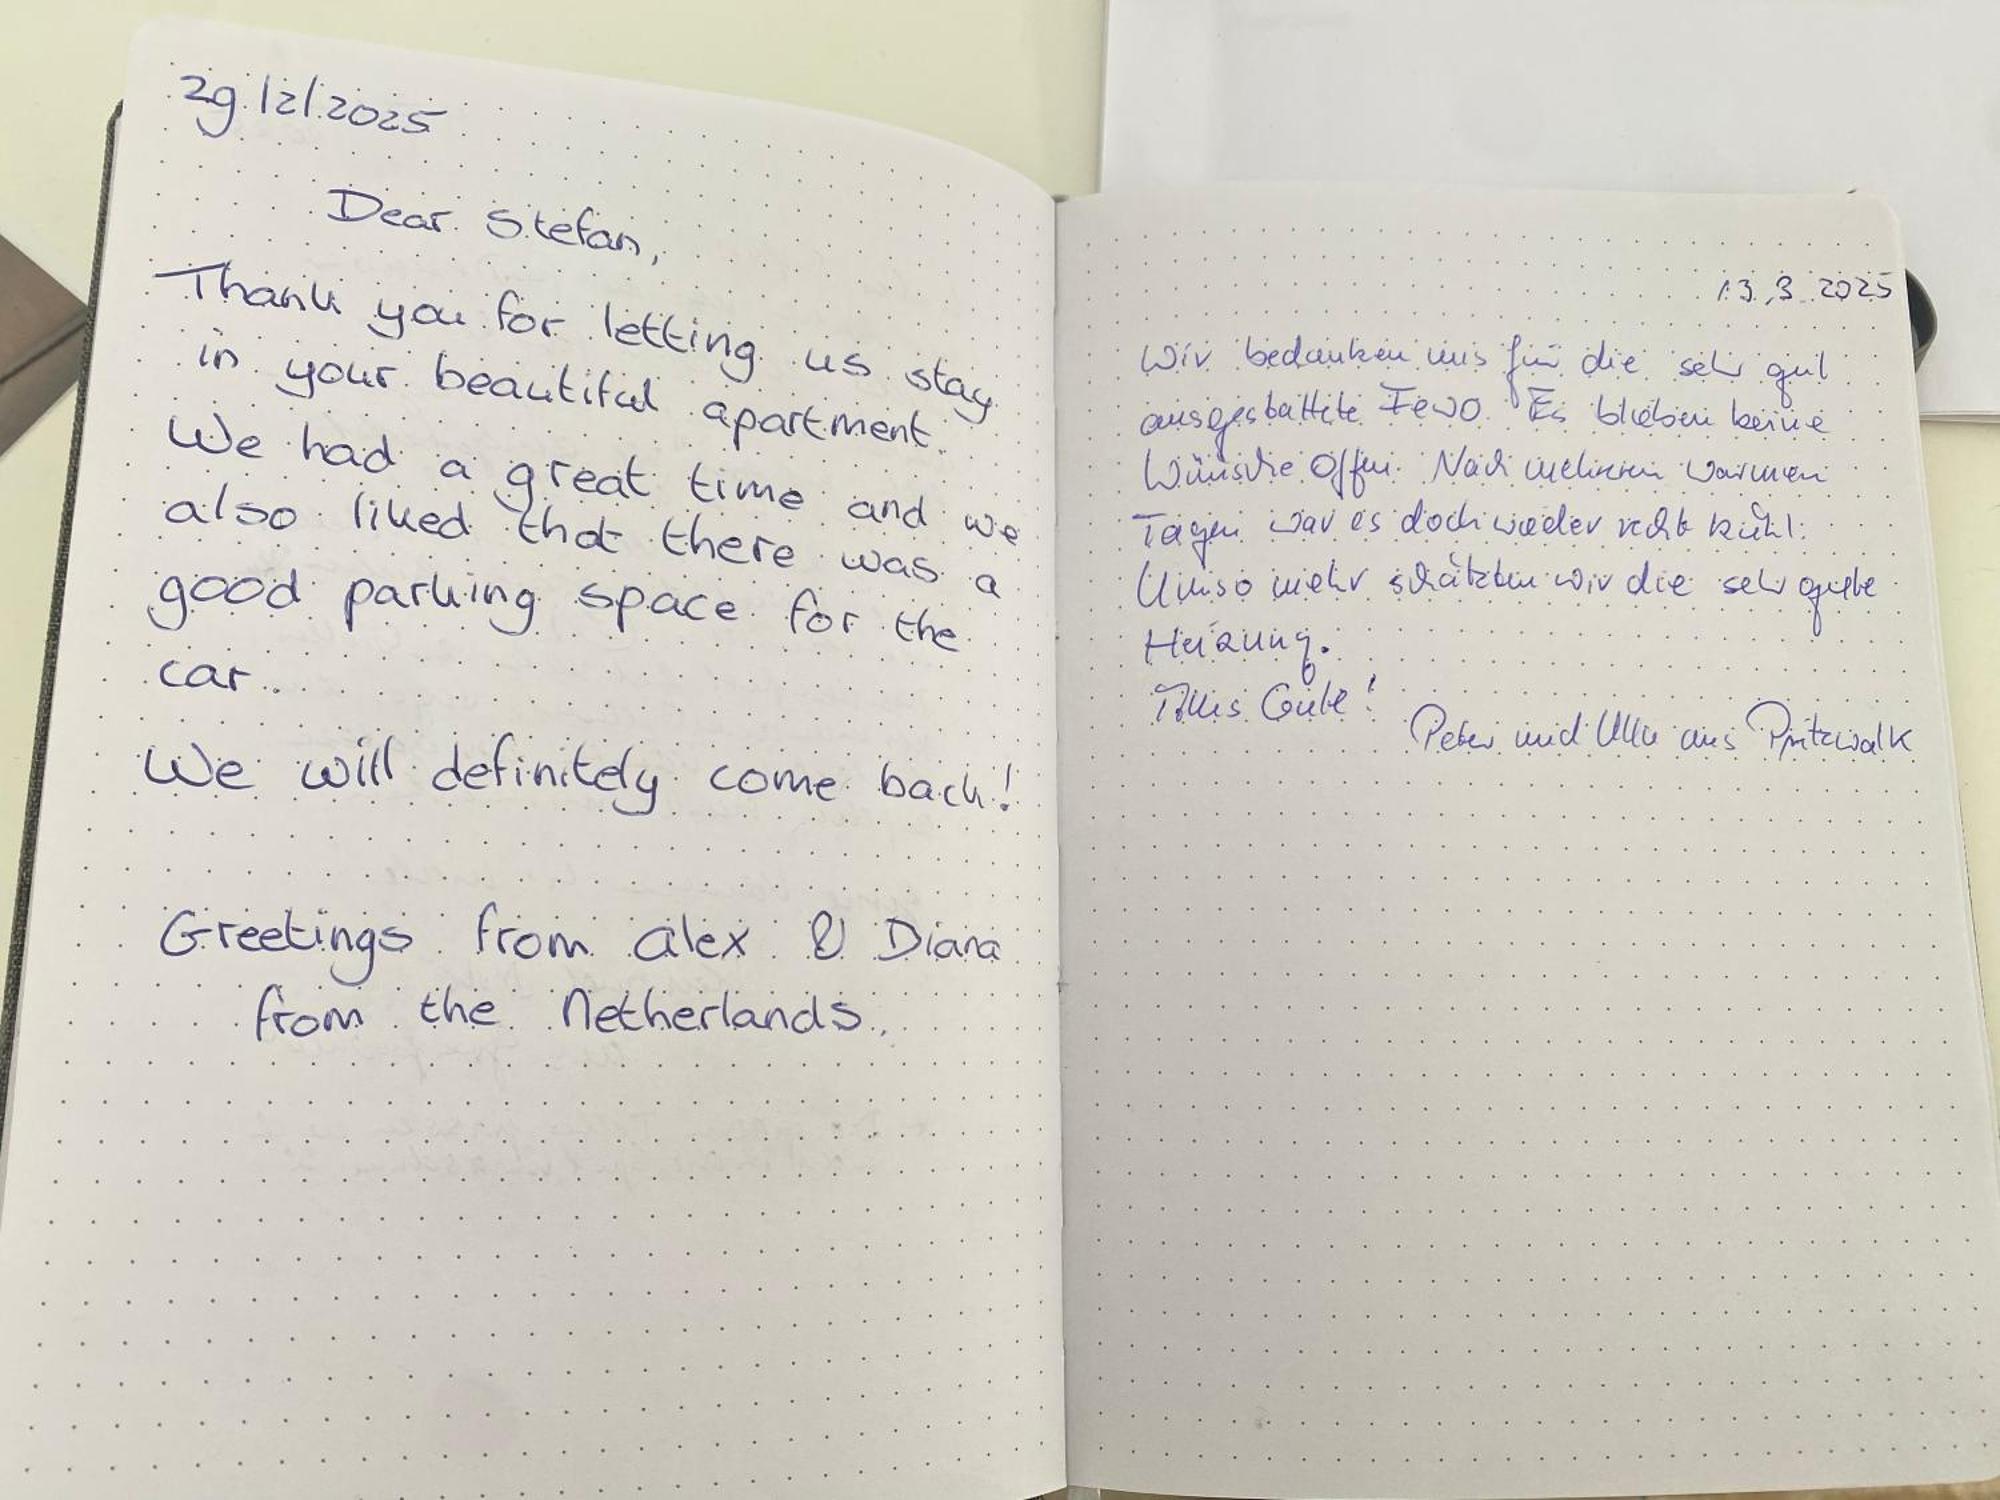 29/2/2025
Dear Stefan,
Thank you for letting us stay
in your beautiful apartment.
We had a great time and we
also liked that there was a
good parking space for the
car.
We will definitely come back!
Greetings from Alex & Diana
from the Netherlands.
13.3.2025
Wir bedanken uns für die sehr gut
ausgestattete Fewo. Es blieben keine
Wünsche offen. Nach mehreren warmen
Tagen war es doch wieder recht kühl.
Umso mehr schätzten wir die sehr gute
Heizung.
Alles Gute!
Peter und Ulla aus Pritzwalk